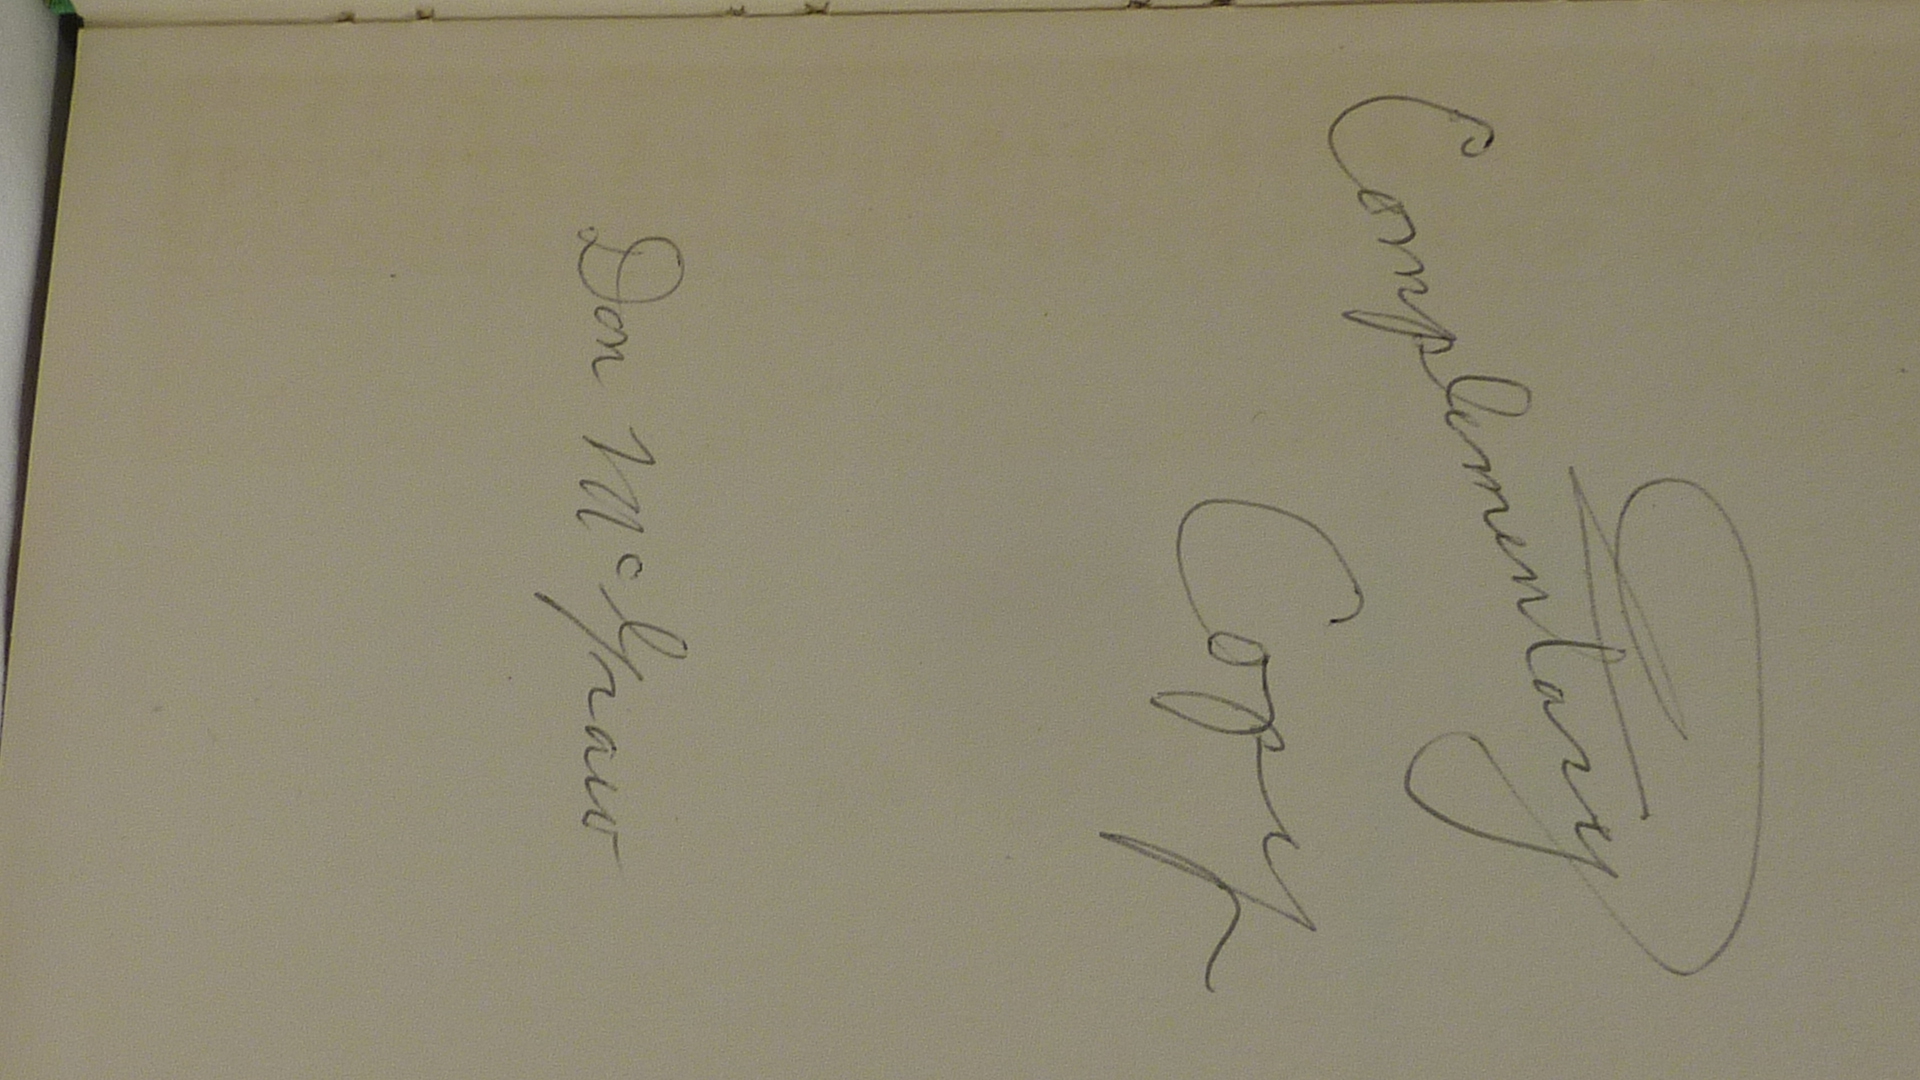 Complementary
Copy
Don McGraw